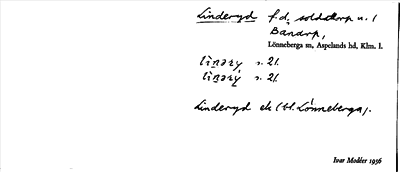 Linderyd f.d. soldattorp u. /
Bänarp,
Lönneberga sn, Aspelands hd, Klm. l.
s. 21.
s. 21.
Linderyd ek (bl. Lönneberga).
Ivar Modéer 1936